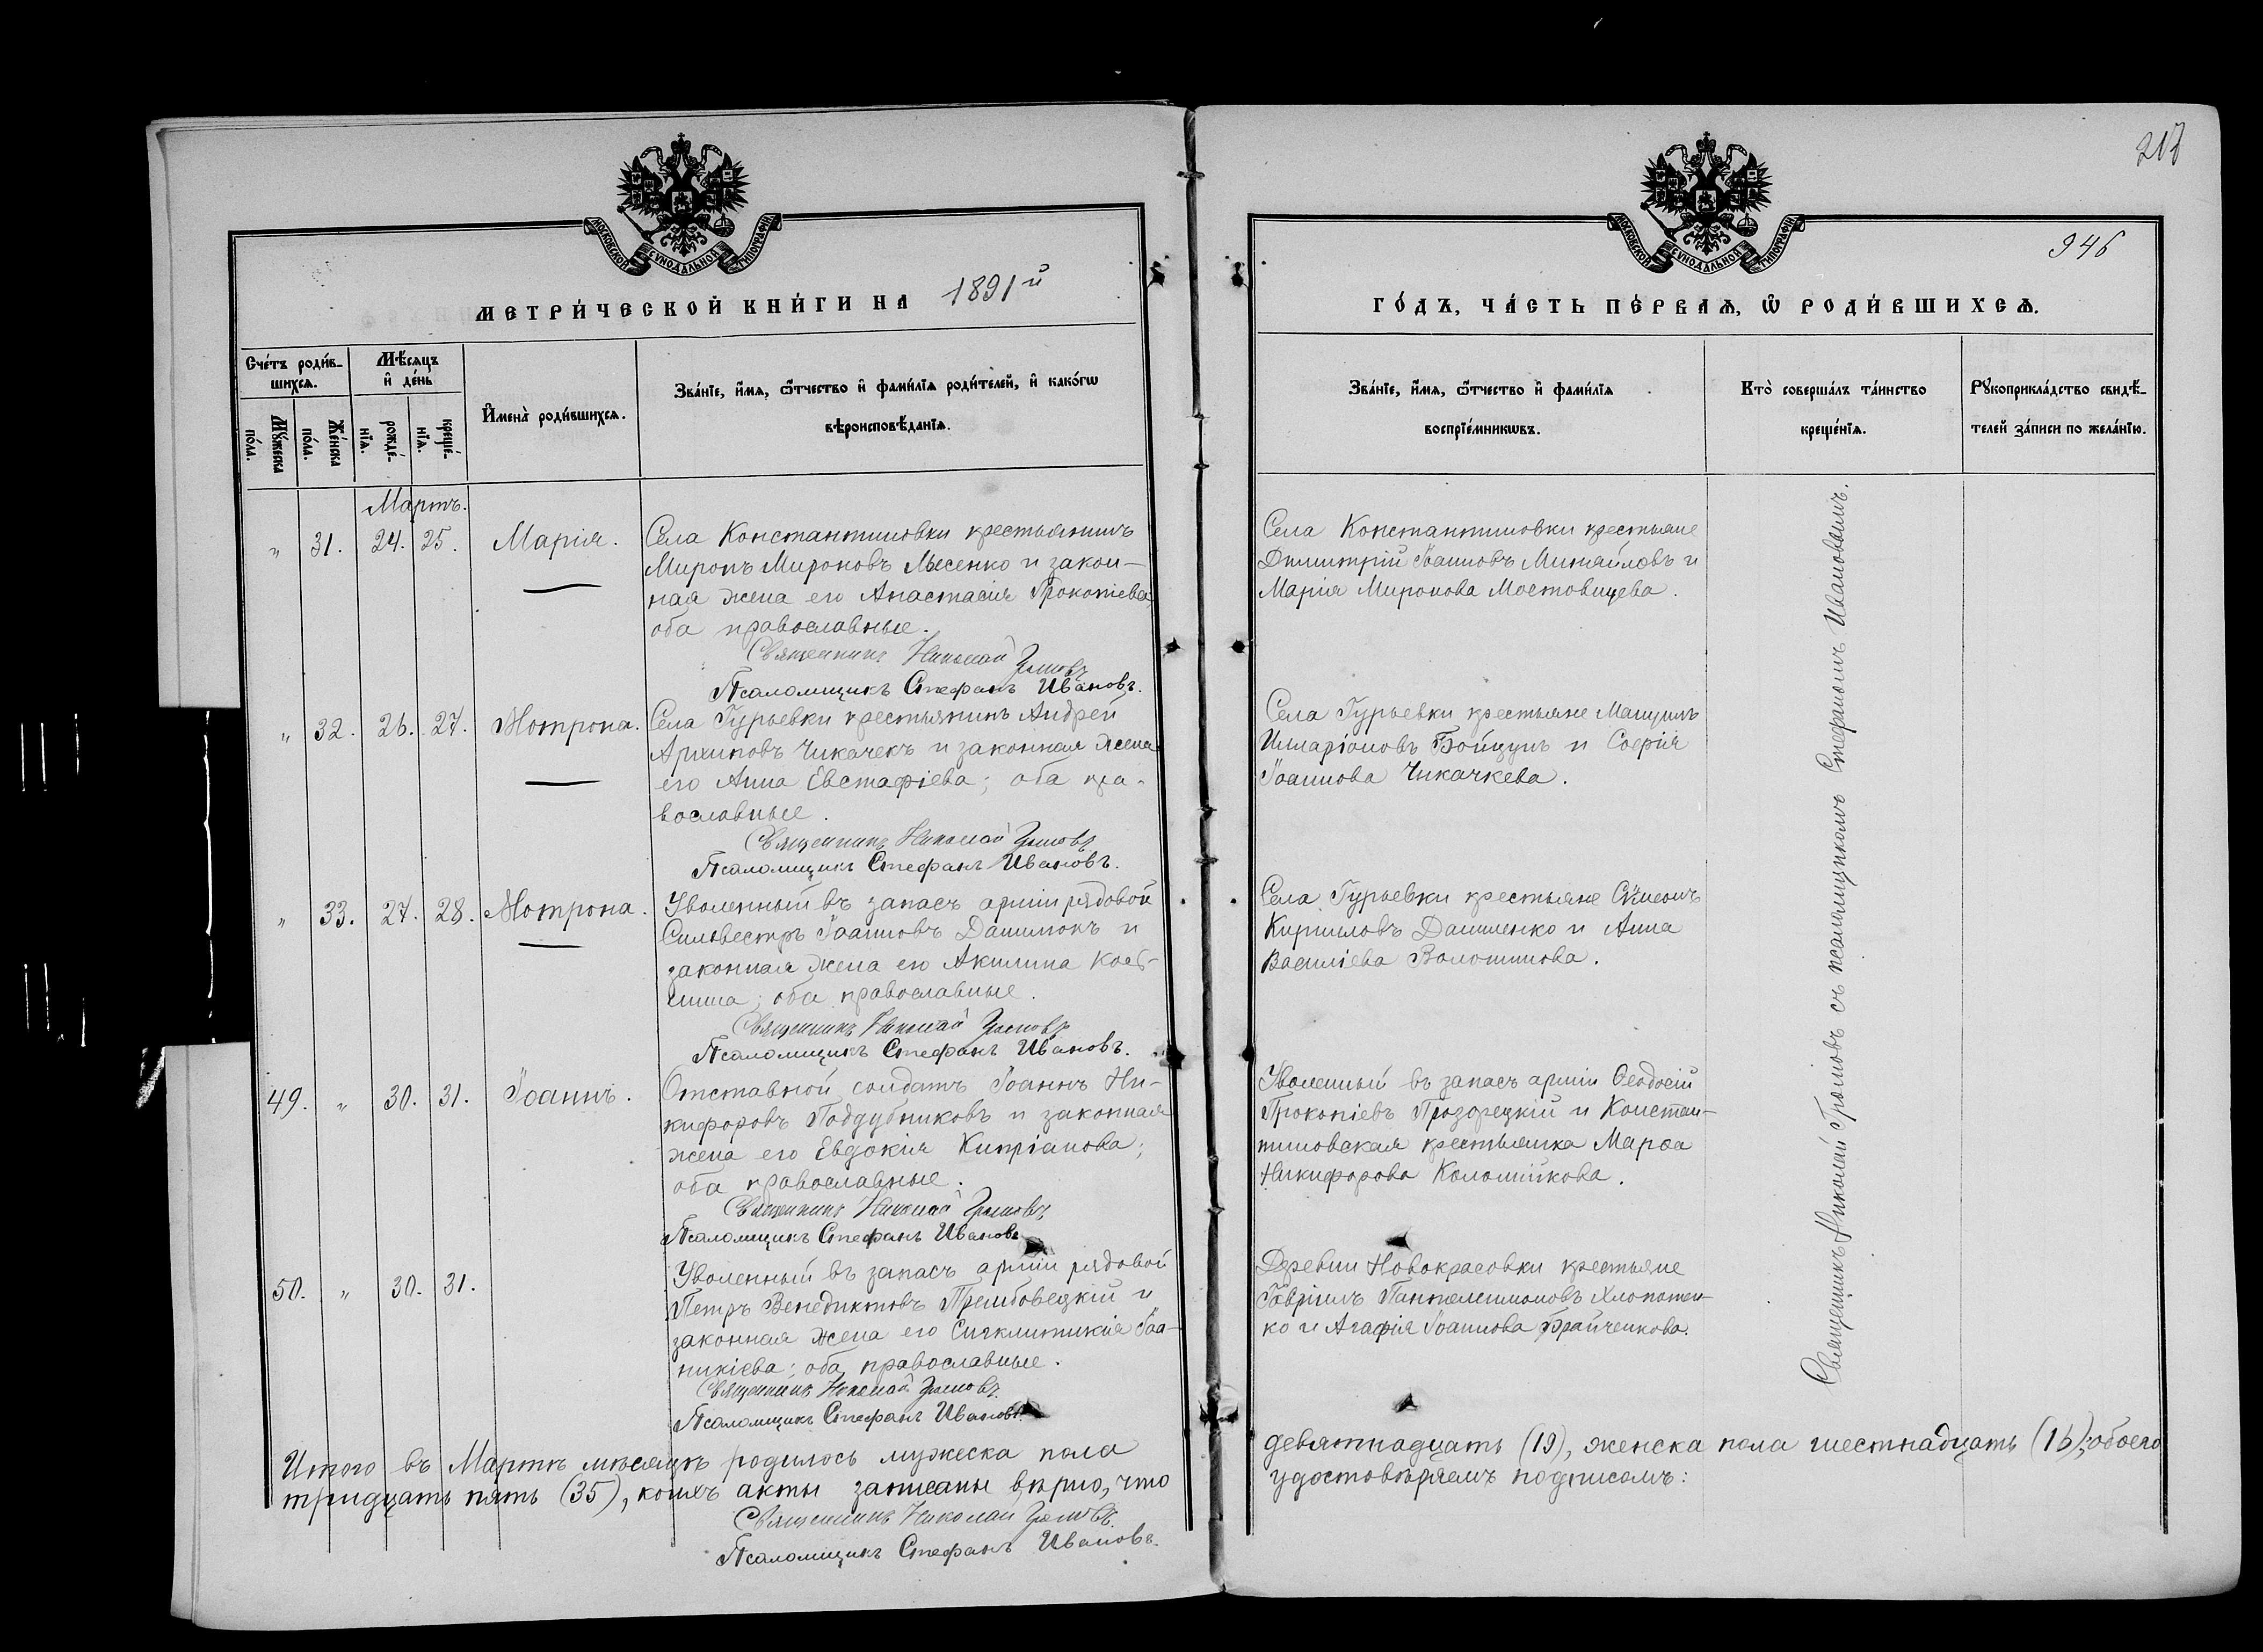 217
946
МОСКОВСКОЙ СУНОДАЛЬНОЙ ТИПОГРАФІИ
МОСКОВСКОЙ СУНОДАЛЬНОЙ ТИПОГРАФІИ
МЕТРИ́ЧЕСКОЙ КНИ́ГИ НА 1891й
ГО́ДЪ, ЧА́СТЬ ПЕ́РВАѦ, Ѡ҆ РОДИ́ВШИХСѦ.
Сче́тъ роди́в-
шихсѧ.
Мѣ́сѧцъ
и҆ де́нь
Му́жеска по́ла.
Же́нска по́ла.
рожде́-нїѧ.
креще́-нїѧ.
И҆мена̀ роди́вшихсѧ.
Зва́нїе, и҆́мѧ, ѻ҆́тчество и҆ фами́лїѧ роди́телей, и҆ како́гѡ
вѣроисповѣ́данїѧ.
Зва́нїе, и҆́мѧ, ѻ҆́тчество и҆ фами́лїѧ
воспрїе́мникѡвъ.
Кто̀ соверша́лъ та́инство
креще́нїѧ.
Рꙋкоприкла́дство свидѣ́-
телей за́писи по жела́нїю.
Мартъ.
" 31. 24. 25. Марія. Села Константиновки крестьянинъ
Миронъ Мироновъ Лысенко и закон-
ная жена его Анастасія Прокопіева
оба православные.
Священникъ Николай Громовъ
Псаломщикъ Стефанъ Ивановъ.
Села Константиновки крестьяне
Димитрій Іоанновъ Михайловъ и
Марія Миронова Мостовщева.
" 32. 26. 27. Мотрона. Села Гурьевки крестьянинъ Андрей
Архиповъ Чикачекъ и законная жена
его Анна Евстафіева; оба пра-
вославные.
Священникъ Николай Громовъ
Псаломщикъ Стефанъ Ивановъ.
Села Гурьевки крестьяне
Илларіоновъ Бойцунъ и Софія
Іоаннова Чикачкева.
" 33. 27. 28. Мотрона. Уволенный въ запасъ арміи рядовой
Сильвестръ Іоанновъ Данилюкъ и
законная жена его Акилина
оба православные.
Священникъ Николай Громовъ
Псаломщикъ Стефанъ Ивановъ.
Села Гурьевки крестьяне Сѵмеонъ
Кирилловъ Даниленко и Анна
Василіева Волошинова.
49. " 30. 31. Іоаннъ. Отставной солдатъ Іоаннъ Ни-
кифоровъ Поддубниковъ и законная
жена его Евдокія Кипріанова;
оба православные.
Священникъ Николай Громовъ
Псаломщикъ Стефанъ Ивановъ
Уволенный въ запасъ арміи Ѳеодосій
Прокопіевъ Прозорецкій и Констан-
тиновская крестьянка Марѳа
Никифорова Коломійкова.
50. " 30. 31. Уволенный въ запасъ арміи рядовой
Петръ Венедиктовъ Трембовецкій и
законная жена его Сигклитикія Іоа-
никіева; оба православные.
Священникъ Николай Громовъ.
Псаломщикъ Стефанъ Ивановъ.
Деревни Новокрасовки крестьяне
Гавріилъ Пантелеимоновъ Хлопотен-
ко и Агафія Іоаннова Брайченкова.
Священникъ Николай Громовъ съ псаломщикомъ Стефаномъ Ивановымъ.
Итого въ Мартѣ мѣсяцѣ родилось мужеска пола девятнадцать (19), женска пола шестнадцать (16); обоего
тридцать пять (35), коихъ акты записаны вѣрно, что удостовѣряемъ подписомъ:
Священникъ Николай Громовъ.
Псаломщикъ Стефанъ Ивановъ.